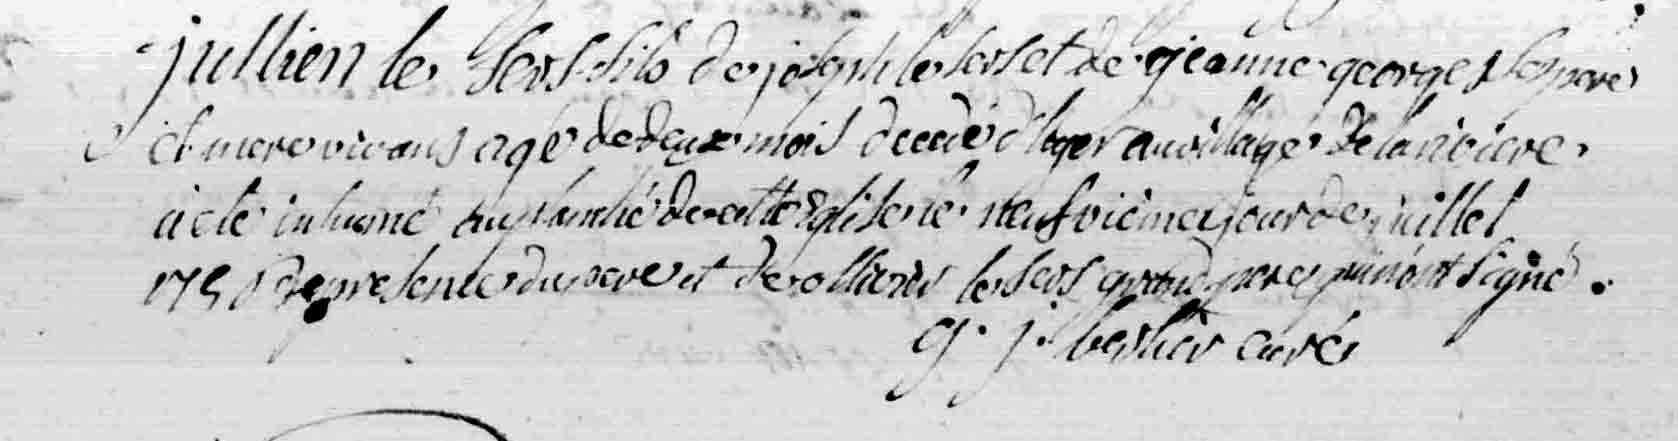 jullien le sers fils de joseph le sers et de jeanne george ses pere
et mere vivans agé de deux mois decedé d'hyer au village de la riviere
a eté inhumé au planché de cette eglise le neufvieme jour de juillet
presence du pere et de ollivier le sers grand pere qui n'ont signé.
g. j. berthier curé